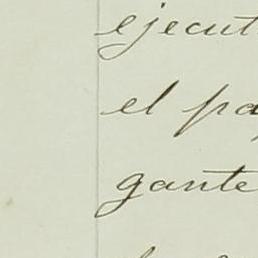 ejecut
el pa
gante